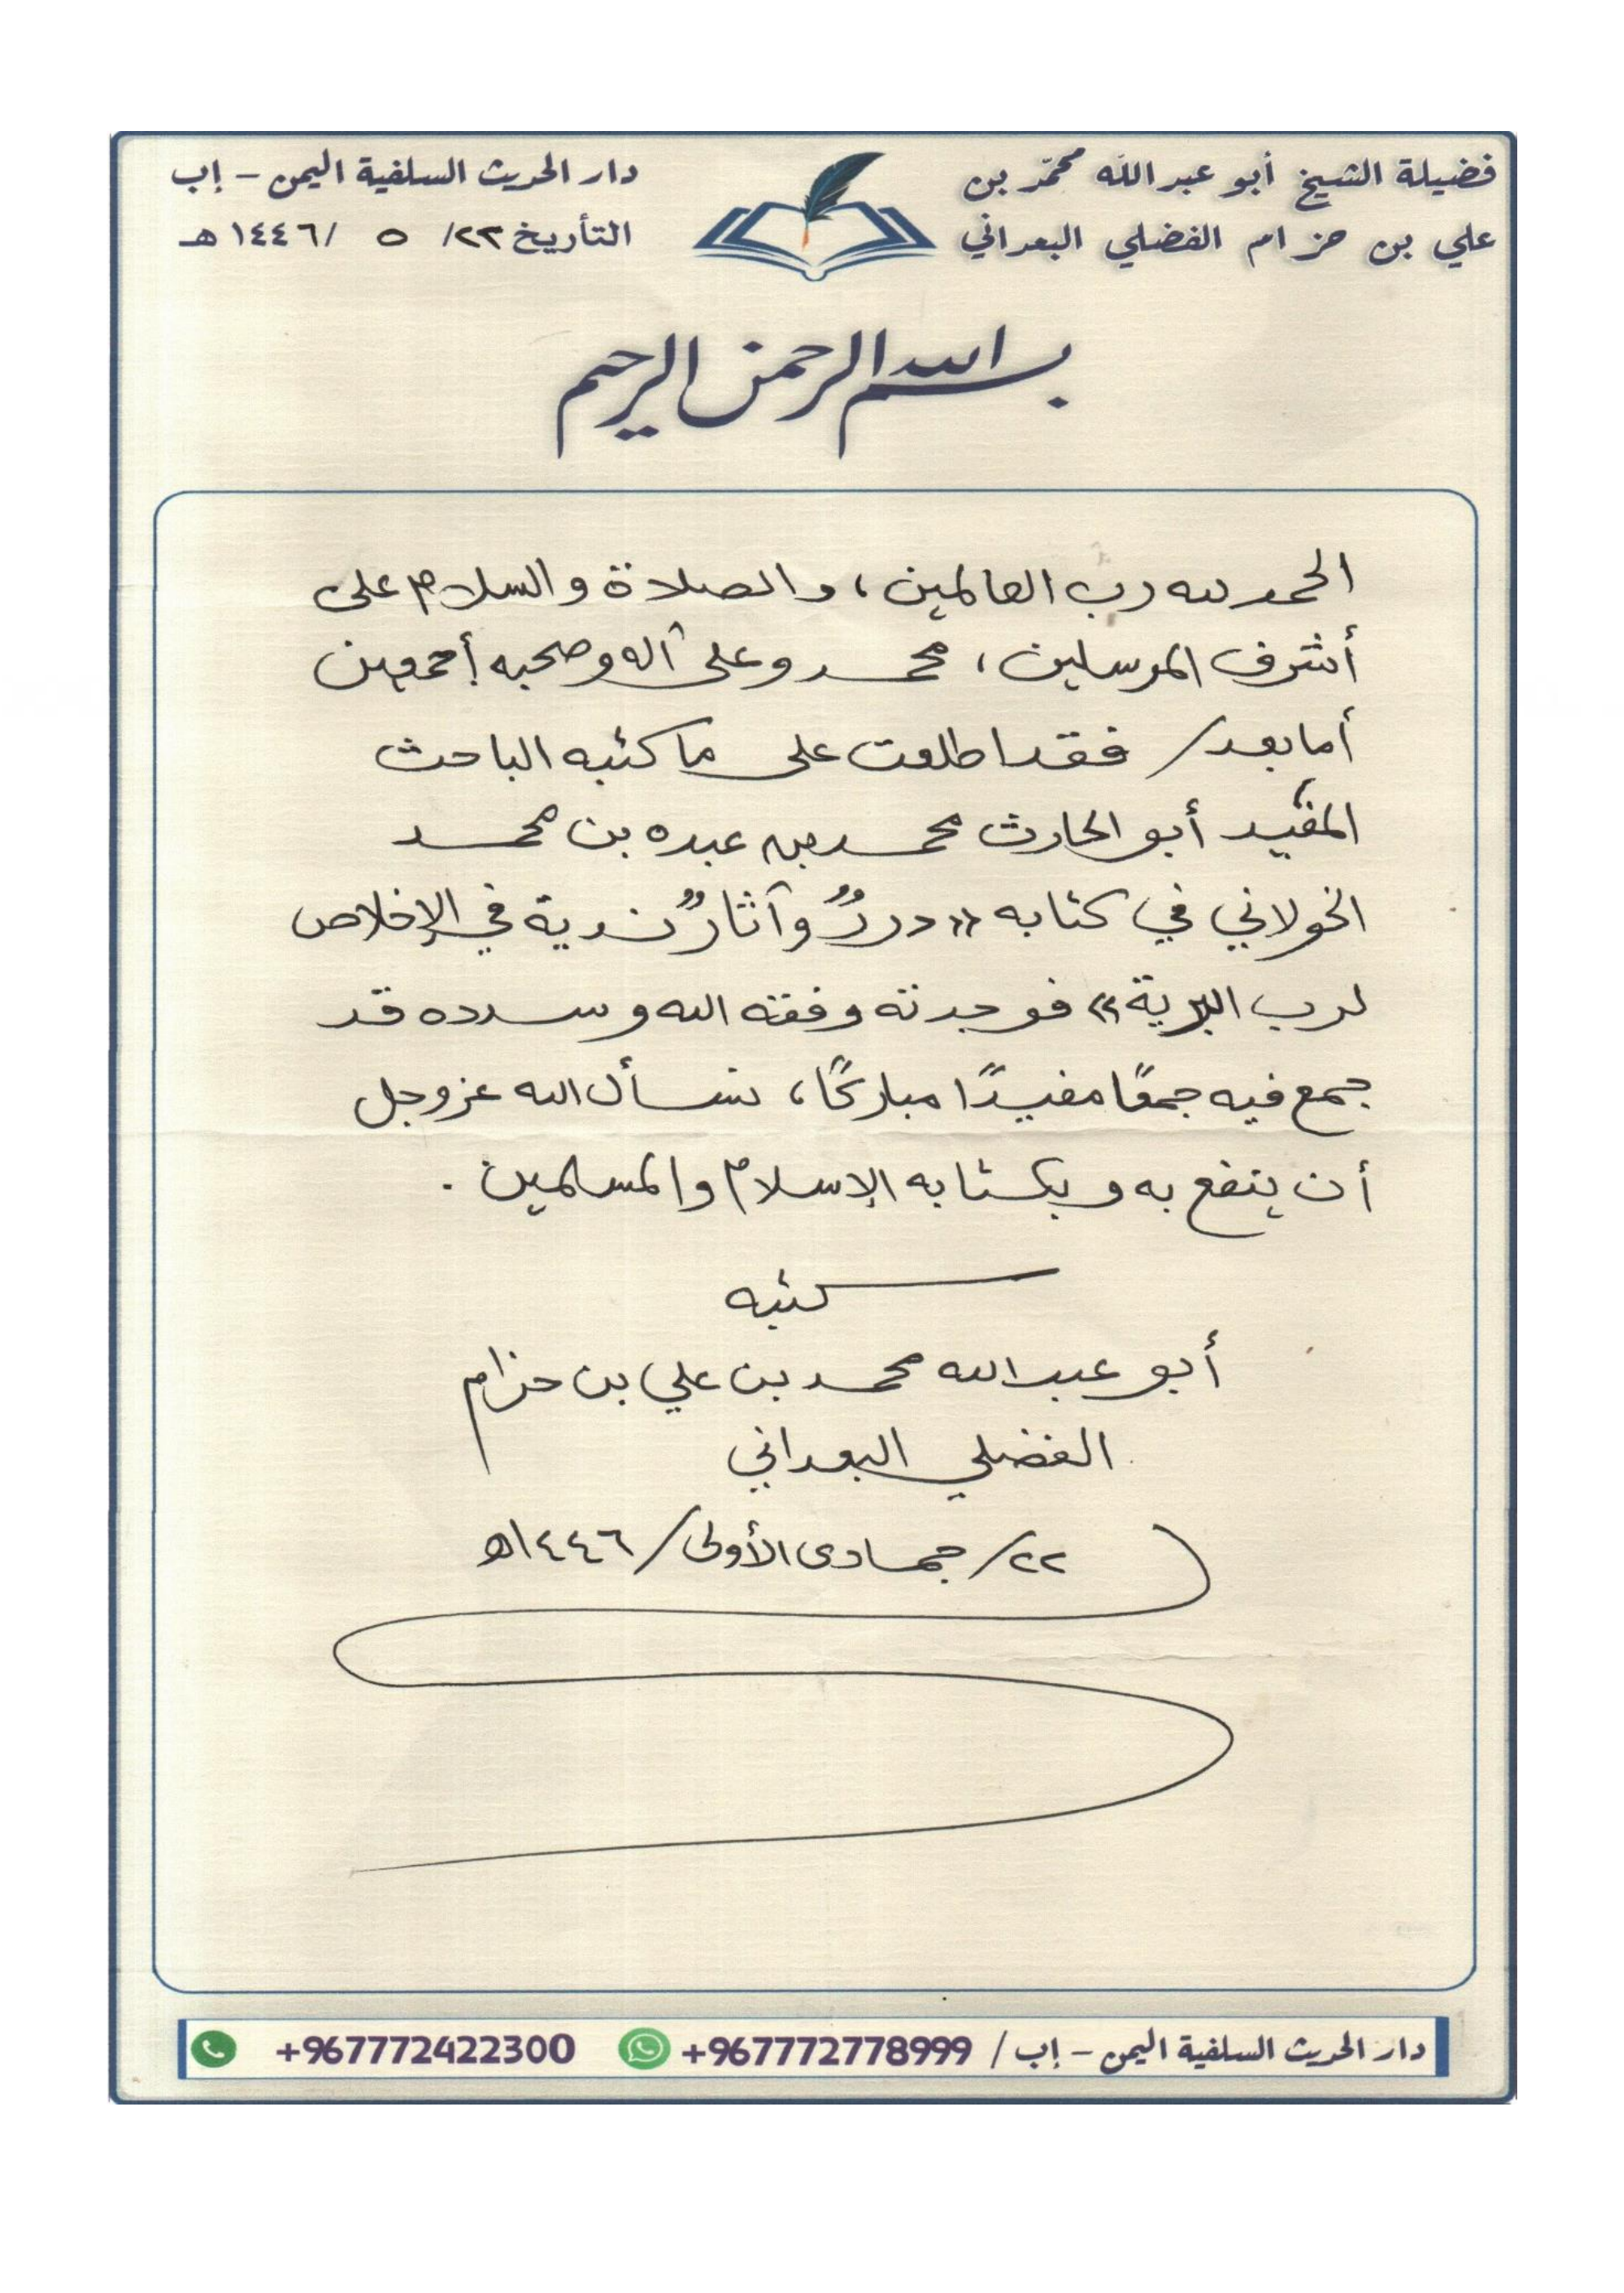 فضيلة الشيخ أبو عبد الله محمّد بن
علي بن حزام الفضلي البعداني
دار الحديث السلفية اليمن - إب
التأريخ ٢٢/ ٥ /١٤٤٦هـ
بسم الله الرحمن الرحيم
الحمد لله رب العالمين، والصلاة والسلام على
أشرف المرسلين، محمد وعلى آله وصحبه أجمعين
أما بعد/ فقد اطلعت على ما كتبه الباحث
المفيد أبو الحارث محمد بن عبده بن محمد
الخولاني في كتابه «دررٌ وآثارٌ ندية في الإخلاص
لرب البرية» فوجدته وفقه الله وسدده قد
جمع فيه جمعًا مفيدًا مباركًا، نسأل الله عز وجل
أن ينفع به وبكتابه الإسلام والمسلمين.
كتبه
أبو عبد الله محمد بن علي بن حزام
الفضلي البعداني
٢٢/جمادى الأولى/١٤٤٦هـ
دار الحديث السلفية اليمن - إب / +967772778999 +967772422300